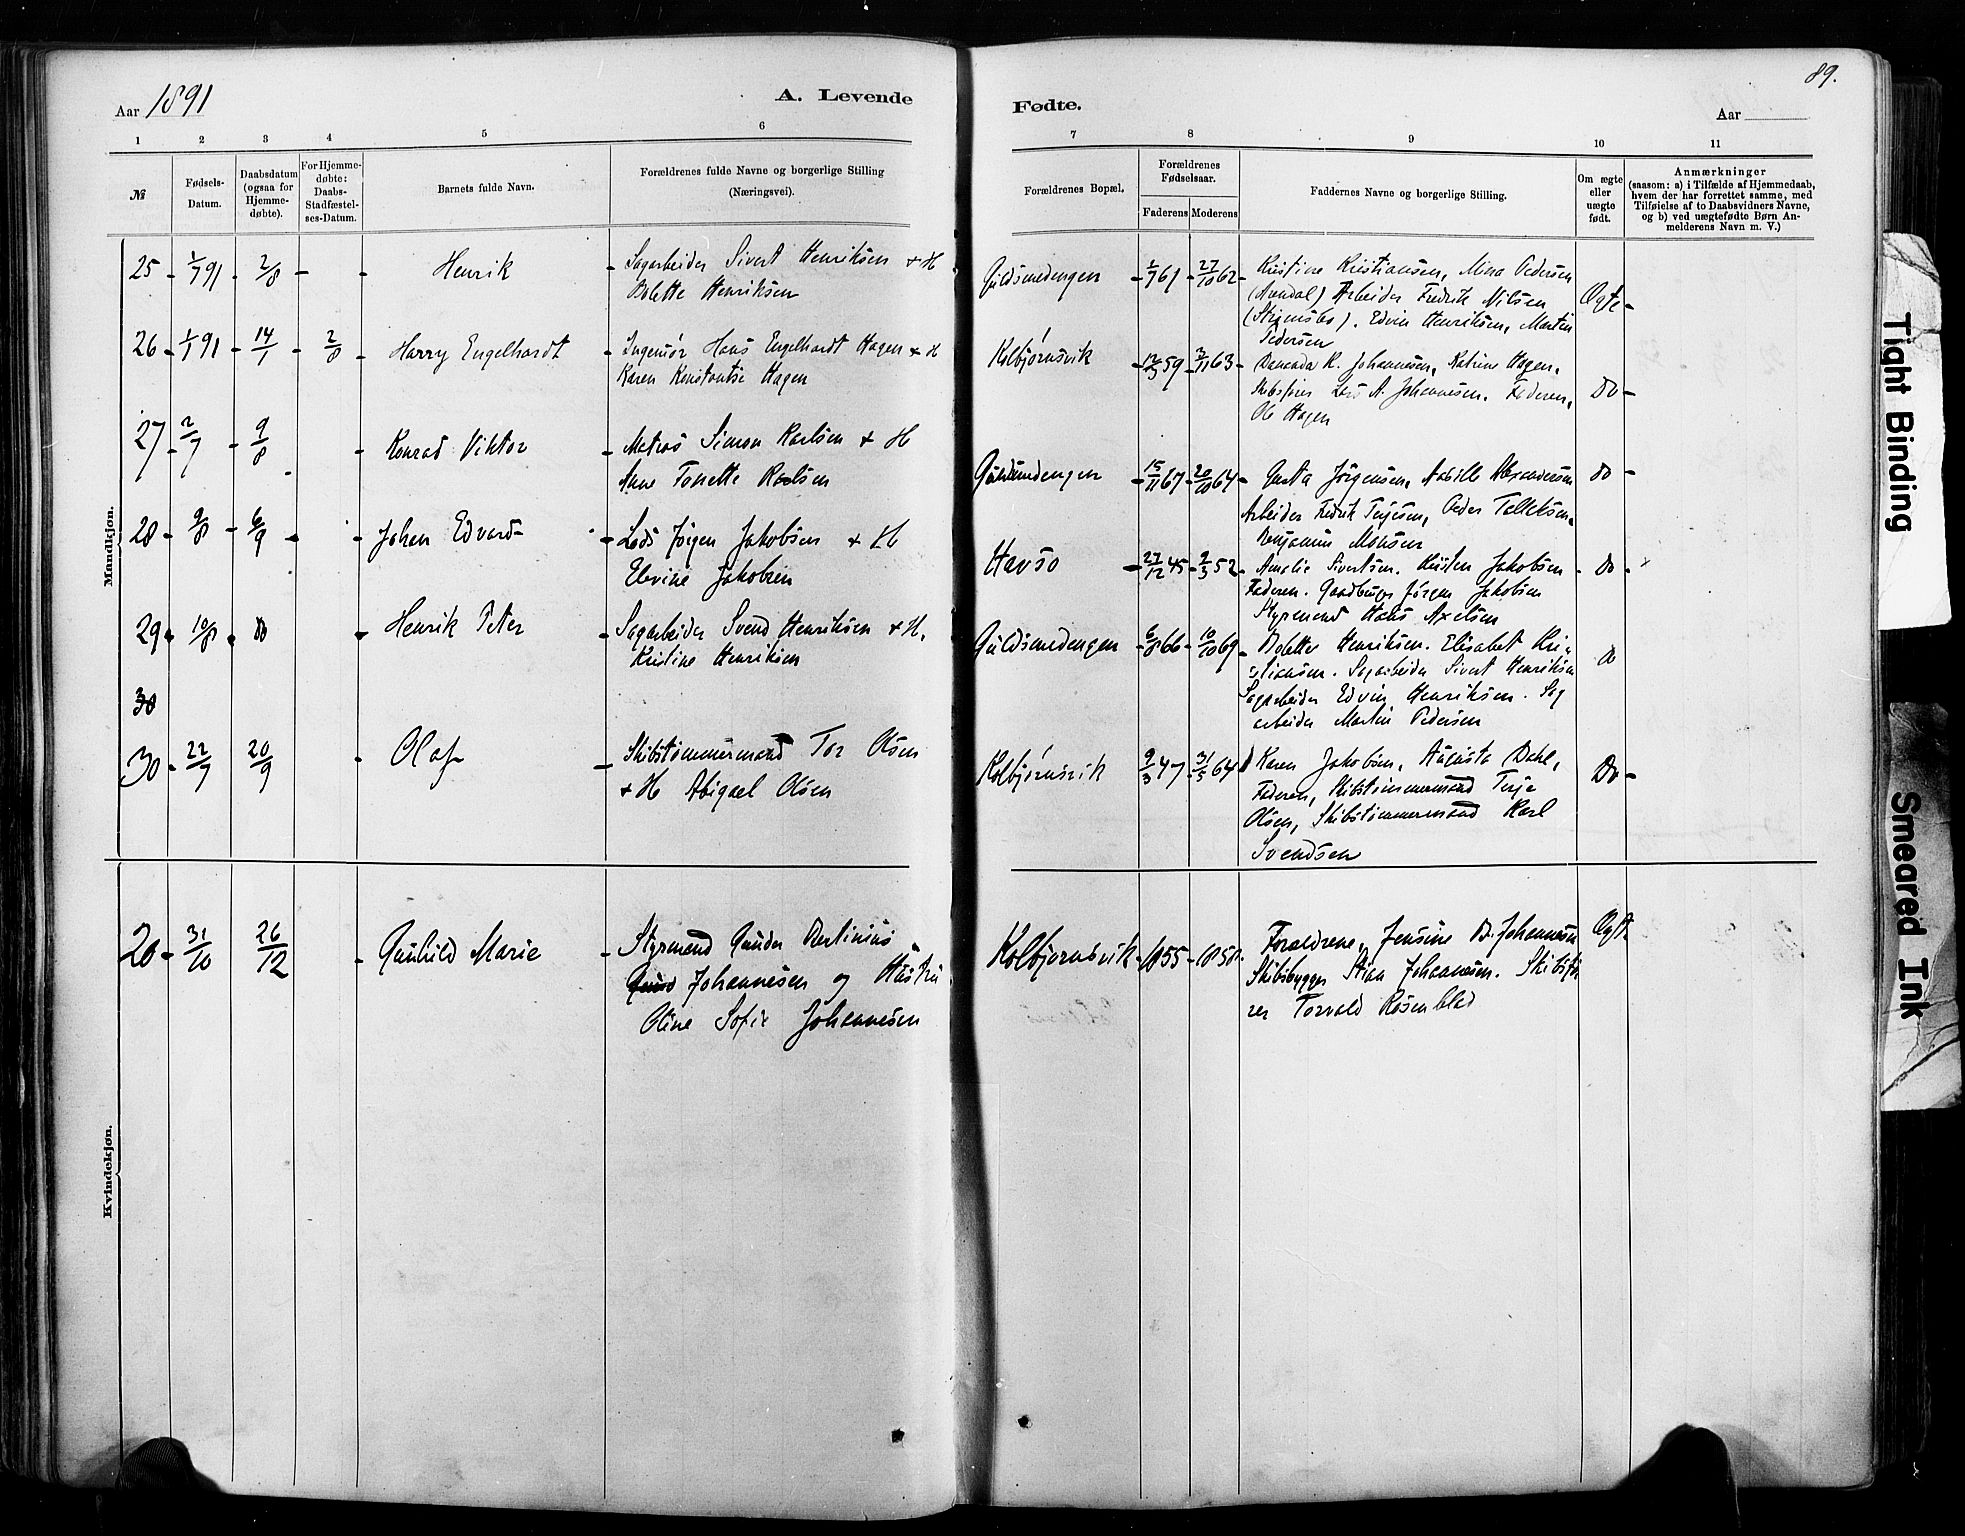 89.
Aar 1891
A. Levende
Fødte.
Aar
1 2 3 4 5 6 7 8 9 10 11
№
Fødsels-
Datum.
Daabsdatum
(ogsaa for
Hjemme-
døbte).
For Hjemme-
døbte:
Daabs-
Stadfæstel-
ses-Datum.
Barnets fulde Navn.
Forældrenes fulde Navne og borgerlige Stilling
(Næringsvei).
Forældrenes Bopæl.
Forældrenes
Fødselsaar.
Faderens Moderens
Faddernes Navne og borgerlige Stilling.
Om ægte
eller
uægte
født.
Anmærkninger
(saasom: a) i Tilfælde af Hjemmedaab,
hvem der har forrettet samme, med
Tilføielse af to Daabsvidners Navne,
og b) ved uægtefødte Børn An-
melderens Navn m. V.)
Mandkjøn.
25 - 1/7 91 - 2/8 - - Henrik - Sagarbeider Sivert Henriksen + H
Bolette Henriksen
Guldsmedengen - 1/7 61 - 27/10 62 - Kristine Kristiansen, Mina Pedersen
(Arendal) Arbeider Fredrik Nilsen
(Strømsbo). Edvin Henriksen, Martin
Pedersen
Ægte -
26 - 1/1 91 - 14/1 - 2/8 - Harry Engelhardt - Ingeniør Hans Engelhardt Hagen + H
Karen Konstantse Hagen
Kolbjørnsvik - 12/3 59 - 2/11 63 - R. Johannesen, Katrine Hagen.
Skibsfører Lars A. Johannesen. Faderen,
Ole Hagen
Do -
27 - 2/7 - 9/8 - Konrad Viktor - Matros Simon Karlsen + H
Anne Tonette Karlsen
Guldsmedengen - 15/11 67 - 20/10 64 - Jørgensen,
Arbeider Fredrik Terjesen, Peder Tellefsen.
Benjamin Monsen
Do -
28 - 9/8 - 6/9 - Johan Edvard - Lods Jørgen Jakobsen + H
Elevine Jakobsen
Havsø - 27/12 45 - 9/3 52 - Amalie Sivertsen. Kristen Jakobsen
Faderen. Gaardbruger Jørgen Jakobsen
Styrmand Hans Axelsen
- Do -
29 - 10/8 - Do - Henrik Peter - Sagarbeider Svend Henriksen + H.
Kristine Henriksen
Guldsmedengen - 6/8 66 - 10/10 69 - Bolette Henriksen. Elisabet Kri-
stiansen. Sagarbeider Sivert Henriksen
Sagarbeider Edvin Henriksen. Sag
arbeider Martin Pedersen
Do
30
30 - 22/7 20/9 - Olaf - Skibstømmermand Tor Olsen
+ H Abigael Olsen
Kolbjørnsvik 9/3 47 - 31/5 64 Karen Jakobsen, Augusta Dahl,
Faderen, Skibstømmermand Terje
Olsen, Skibstømmermand Karl
Svendsen
Do -
Kvindekjøn.
20 - 31/10 26/12 - Gunhild Marie - Styrmand Gunder Bertinius
Johannesen og Hustru
Oline Sofie Johannesen
Kolbjørnsvik - 1855 - 1858. Forældrene, Jensine B. Johannesen
Skibsbygger Stian Johannesen. Skibsfø
rer Torvald Rosenblad
Ægte
Tight Binding
Smeared Ink